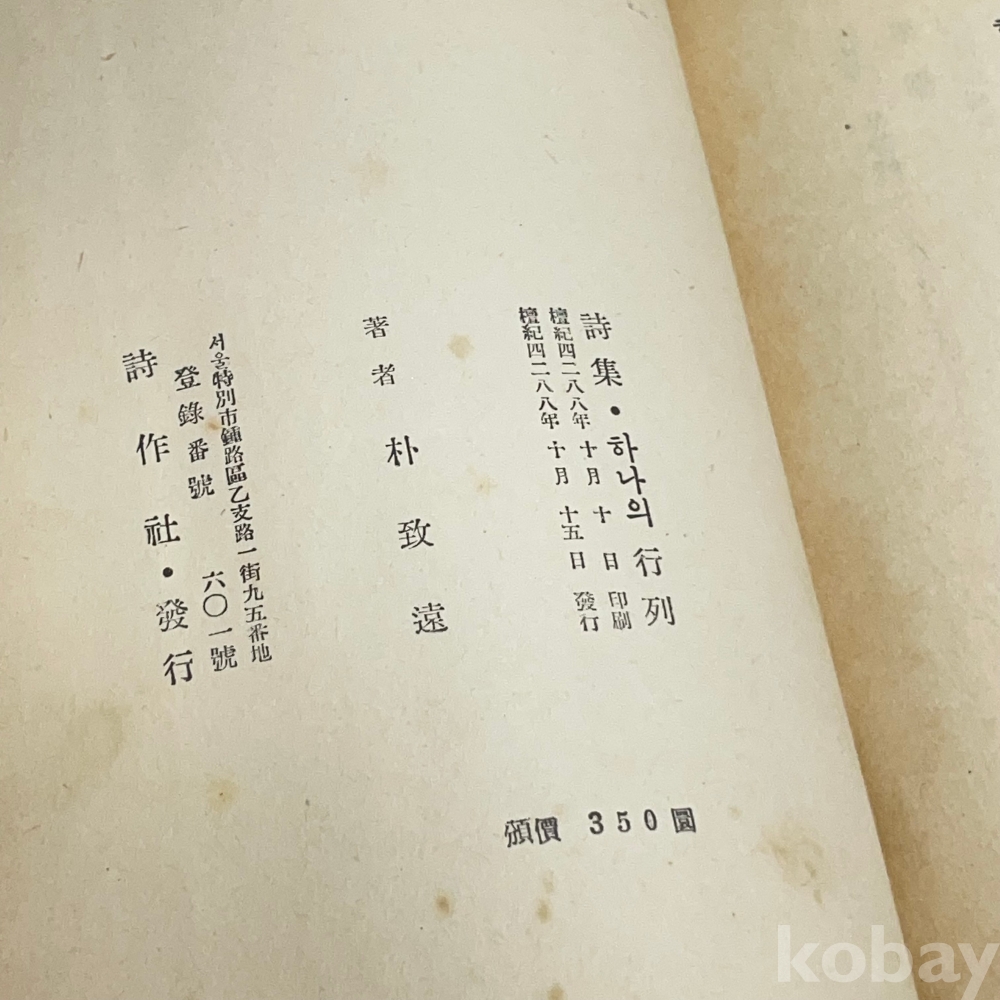 詩集·하나의 行列
檀紀四二八八年 十月 十日 印刷
檀紀四二八八年 十月 十五日 發行
著者 朴致遠
서울特別市鍾路區乙支路一街九五番地
登錄番號 六〇一號
詩作社·發行
頒價 350圓
kobay